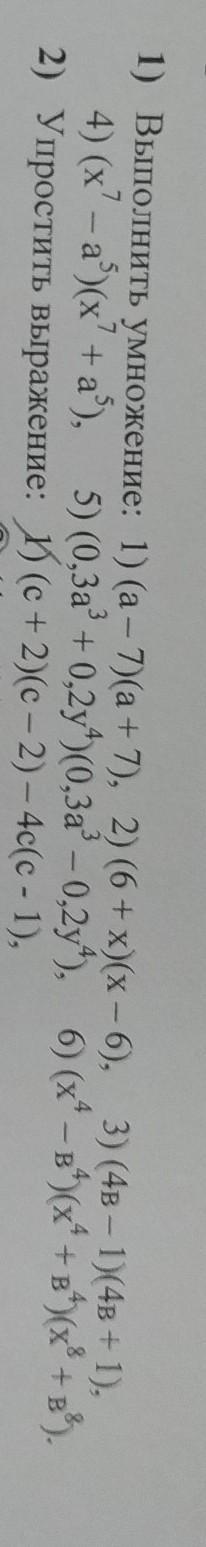 1) Выполнить умножение: 1) (а – 7)(а + 7), 2) (6 + х)(х – 6), 3) (4в – 1)(4в + 1),
4) (х⁷ – а⁵)(х⁷ + а⁵), 5) (0,3а³ + 0,2у⁴)(0,3а³ – 0,2у⁴), 6) (х⁴ – в⁴)(х⁴ + в⁴)(х⁸ + в⁸).
2) Упростить выражение: 1) (с + 2)(с – 2) – 4с(с - 1),